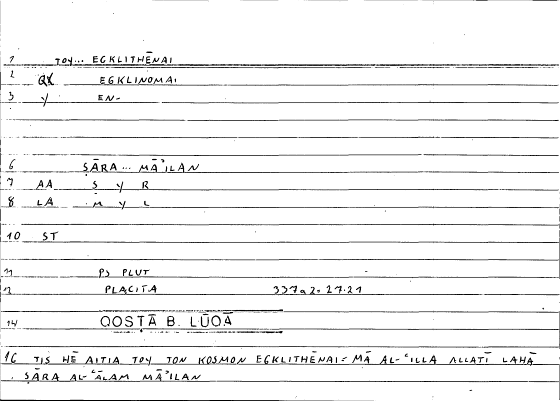 1 TOY... EGKLITHĒNAI
2 QX EGKLINOMAI
3 Y EN-
6 ṢĀRA... MĀʾILAN
7 AA Ṣ Y R
8 LA M Y L
10 ST
11 PS PLUT
12 PLACITA 337a2. 27.21
14 QOSṬĀ B. LŪQĀ
16 TIS HĒ AITIA TOY TON KOSMON EGKLITHĒNAI = MĀ AL-ʿILLA ALLATĪ LAHĀ
ṢĀRA AL-ʿĀLAM MĀʾILAN